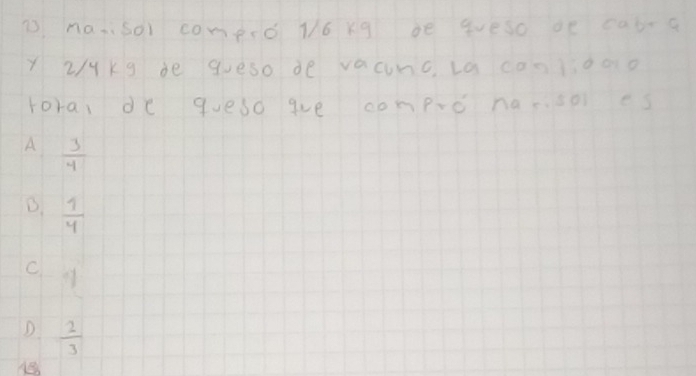 23. marisol compró 1/6 kg de queso de cabra
y 2/4 kg de queso de vacuno. La cantidad
total de queso que compró marisol es
A 3/4
B. 1/4
C 1
D. 2/3